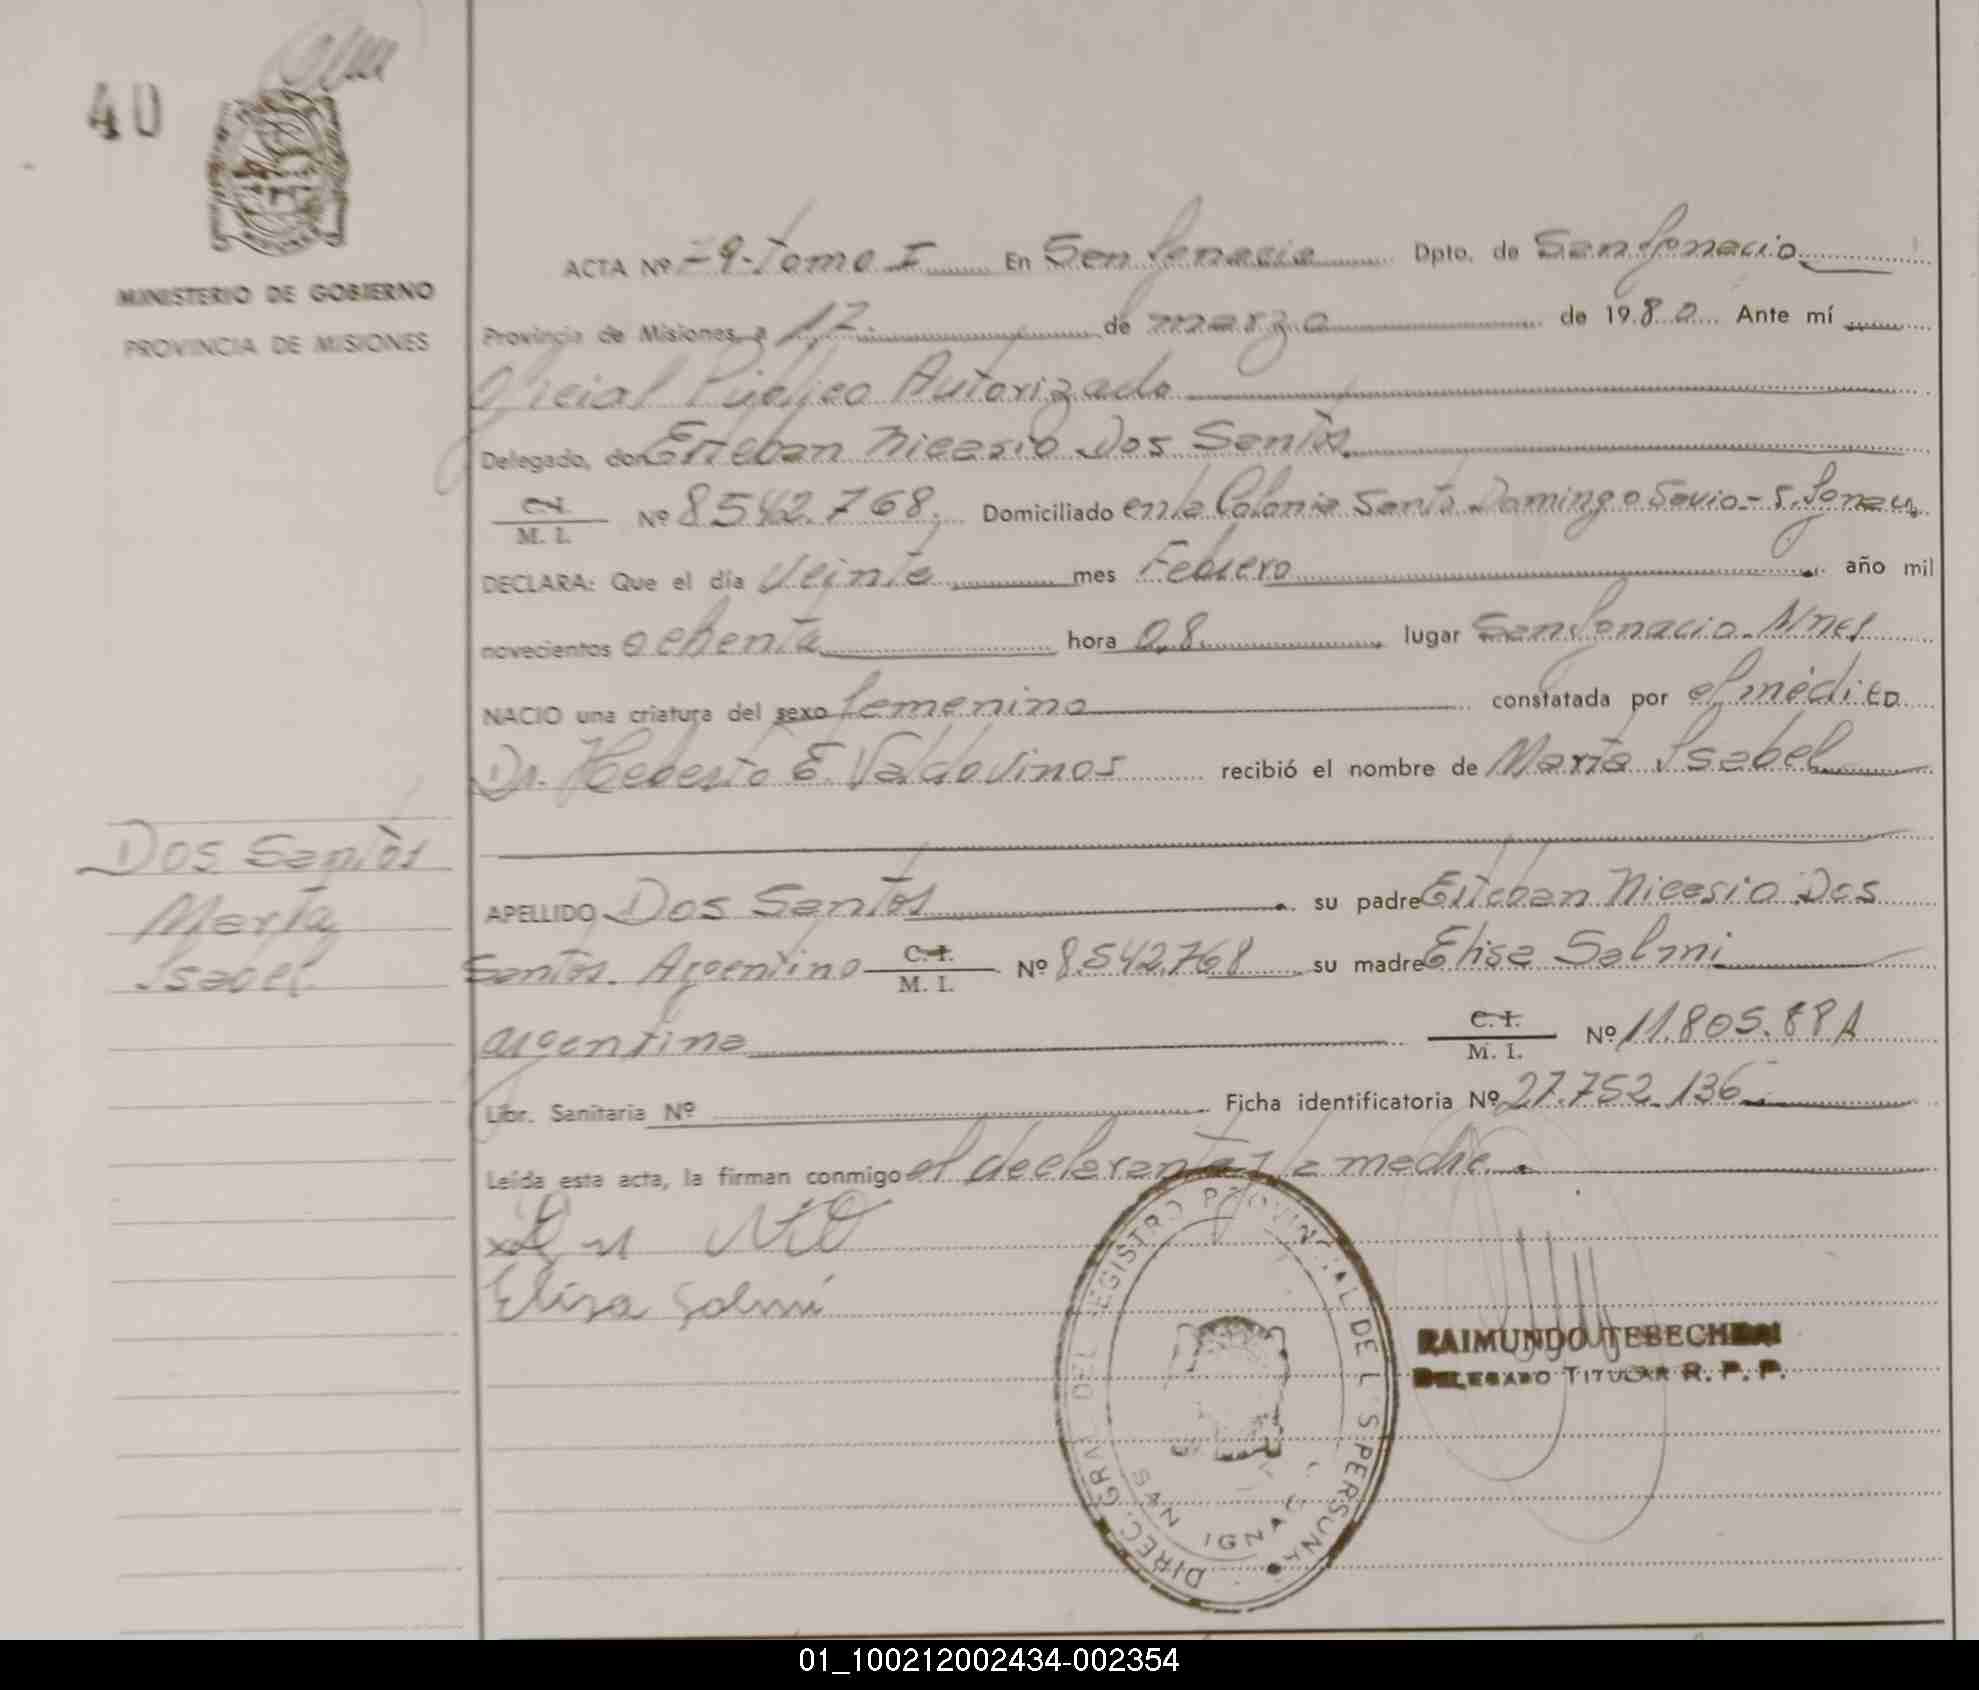 40
MINISTERIO DE GOBIERNO
PROVINCIA DE MISIONES
ACTA Nº 79-Tomo I En San Ignacio Dpto. de San Ignacio
Provincia de Misiones, a 17 de marzo de 1980 Ante mí
Oficial Público Autorizado
Delegado, don Esteban Nicasio Dos Santos
C.I. M. I. Nº 8.542.768. Domiciliado en la Colonia Santo Domingo Savio - S. Ignacio
DECLARA: Que el día Veinte mes Febrero año mil
novecientos ochenta hora 08 lugar San Ignacio - Mnes
NACIO una criatura del sexo femenino constatada por el médico
Dr. Heberto E. Valdovinos recibió el nombre de Marta Isabel
Dos Santos
Marta
Isabel
APELLIDO Dos Santos su padre Esteban Nicasio Dos
Santos. Argentino C.I. M. I. Nº 8.542.768 su madre Elisa Salmi
argentina C.I. M. I. Nº 11.805.881
Libr. Sanitaria Nº Ficha identificatoria Nº 27.752.136
Leída esta acta, la firman conmigo el declarante y la madre.
Elisa Salmi
DIREC. GRAL DEL REGISTRO PROVINCIAL DE L'S PERSONAS
SAN IGNACIO
RAIMUNDO TEBECHERAI
DELEGADO TITULAR R. P. P.
01_100212002434-002354